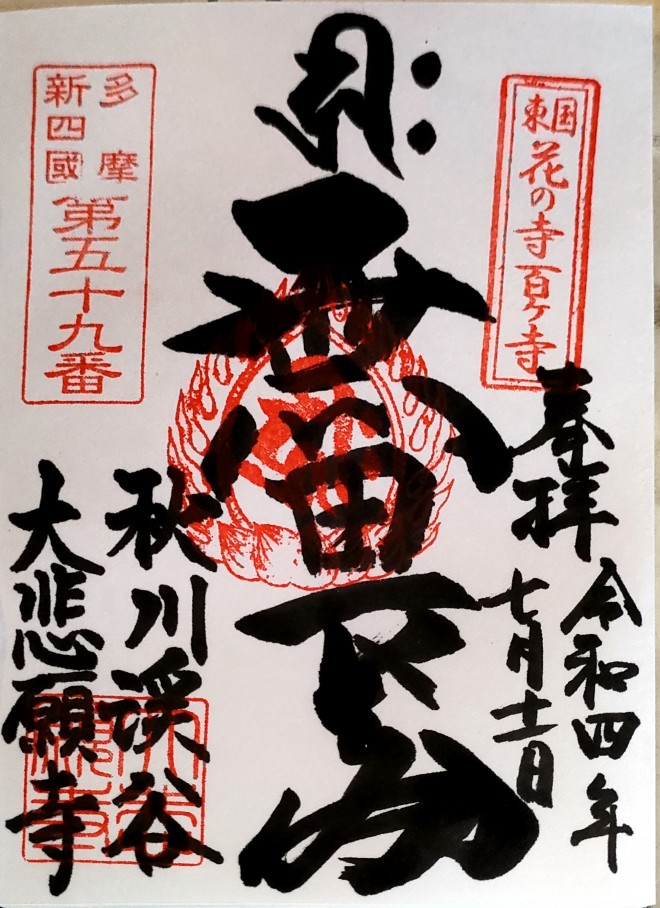 東国
花の寺百ヶ寺
奉拝
令和四年
七月
秋川渓谷
大悲願寺
多摩
新四國
第五十九番